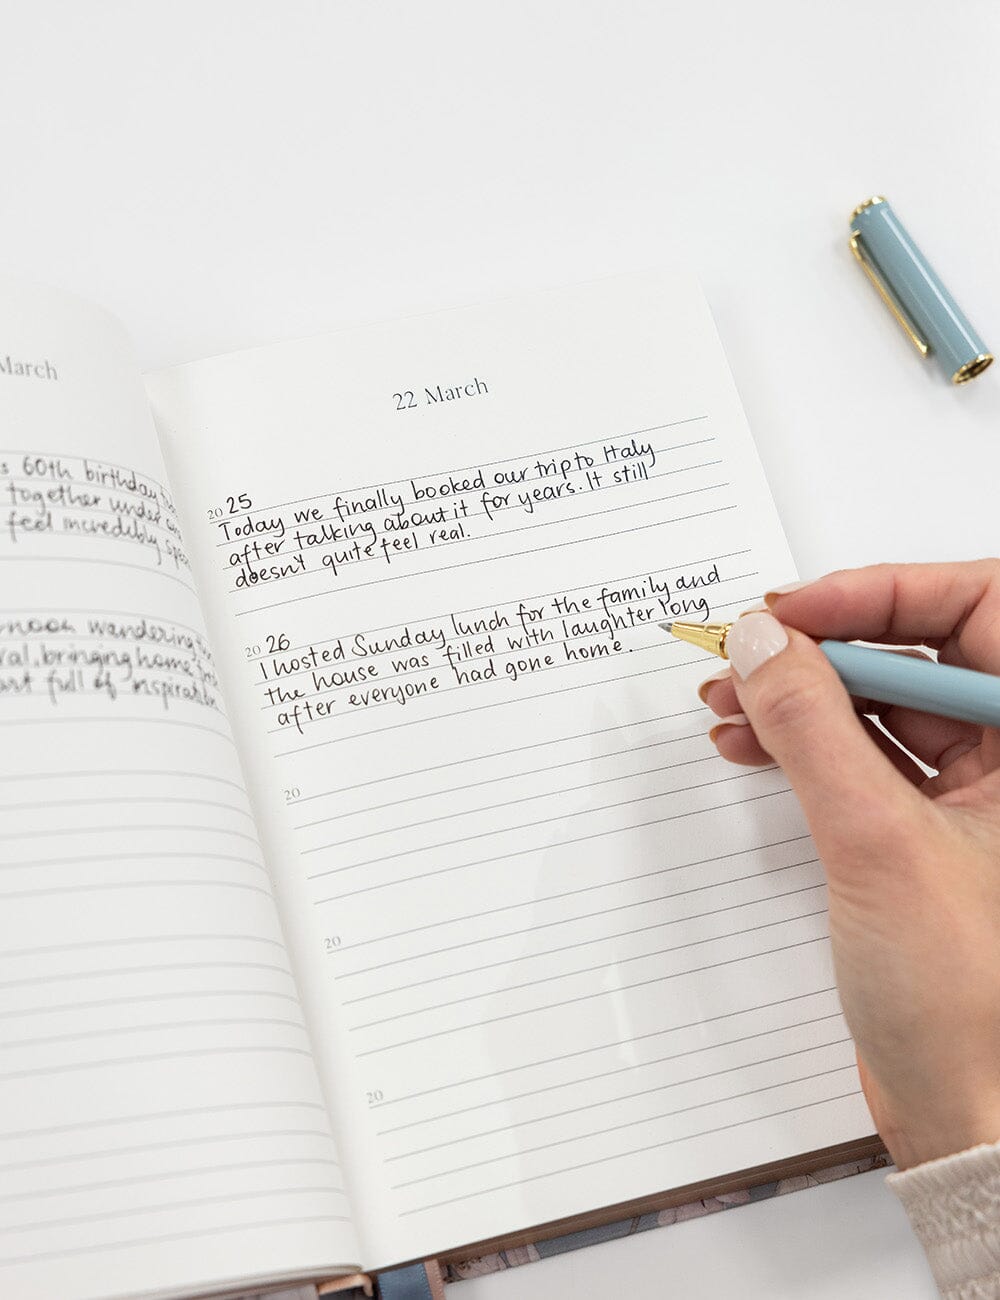 March
s 60th birthday
together under
feel incredibly
wandering
bringing home
full of inspiration
22 March
2025
Today we finally booked our trip to Italy
after talking about it for years. It still
doesn't quite feel real.
2026
I hosted Sunday lunch for the family and
the house was filled with laughter long
after everyone had gone home.
20
20
20